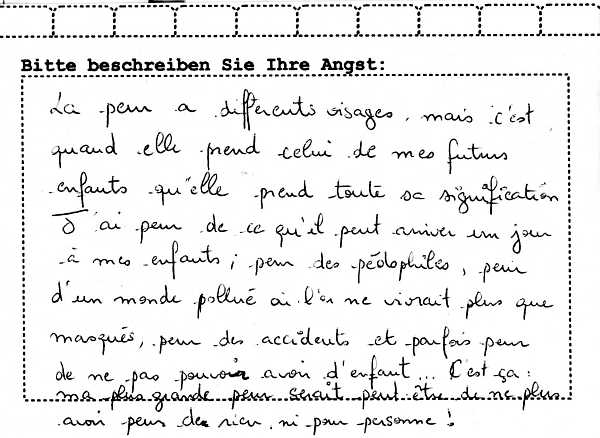 Bitte beschreiben Sie Ihre Angst:
La peur a différents visages, mais c'est
quand elle prend celui de mes futurs
enfants qu'elle prend toute sa signification
J'ai peur de ce qu'il peut arriver un jour
à mes enfants ; peur des pédophiles, peur
d'un monde pollué où l'on ne vivrait plus que
masqués, peur des accidents et parfois peur
de ne pas pouvoir avoir d'enfant... C'est ça :
ma plus grande peur serait peut-être de ne plus
avoir peur de rien, ni pour personne !